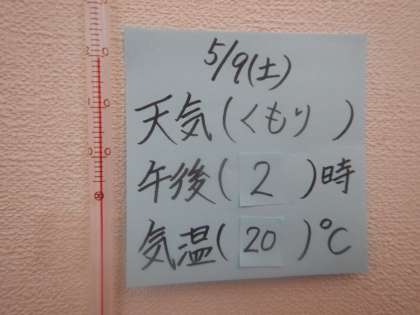 5/9(土)
天気(くもり)
午後(2)時
気温(20)℃